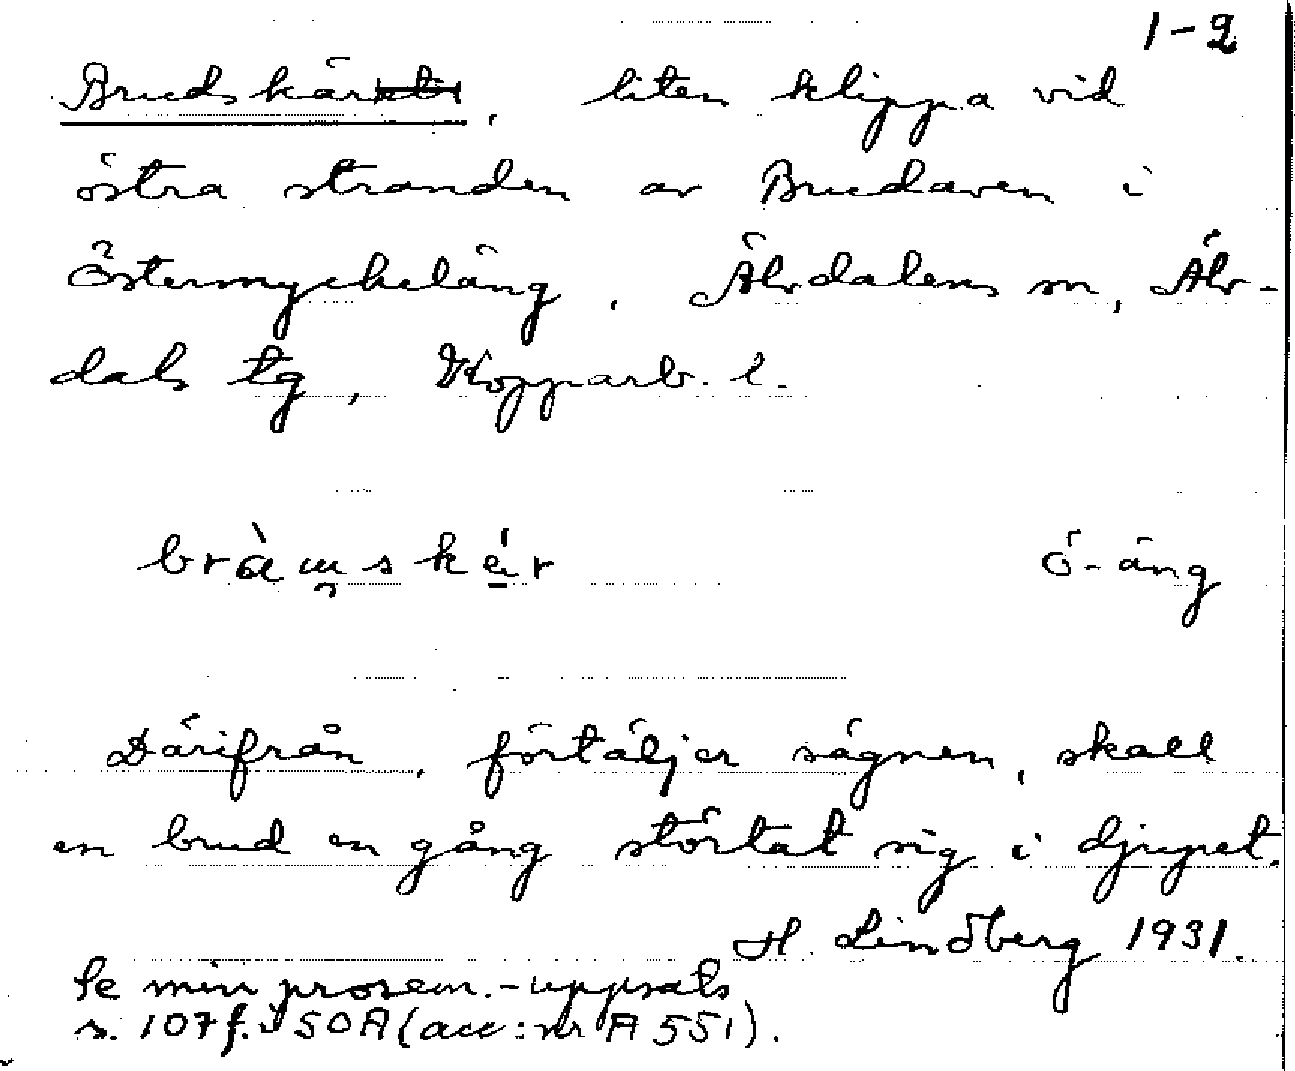 1-2
Brudskär, liten klippa vid
östra stranden av Brudaven i
Östermyckeläng, Älvdalens sn, Älv-
dals tg, Kopparb. l.
ö-äng
Därifrån, förtäljer sägnen, skall
en brud en gång störtat sig i djupet.
H. Lindberg 1931.
Se min prosem.-uppsats
s. 107f. i SOA (acc:nr A 551).